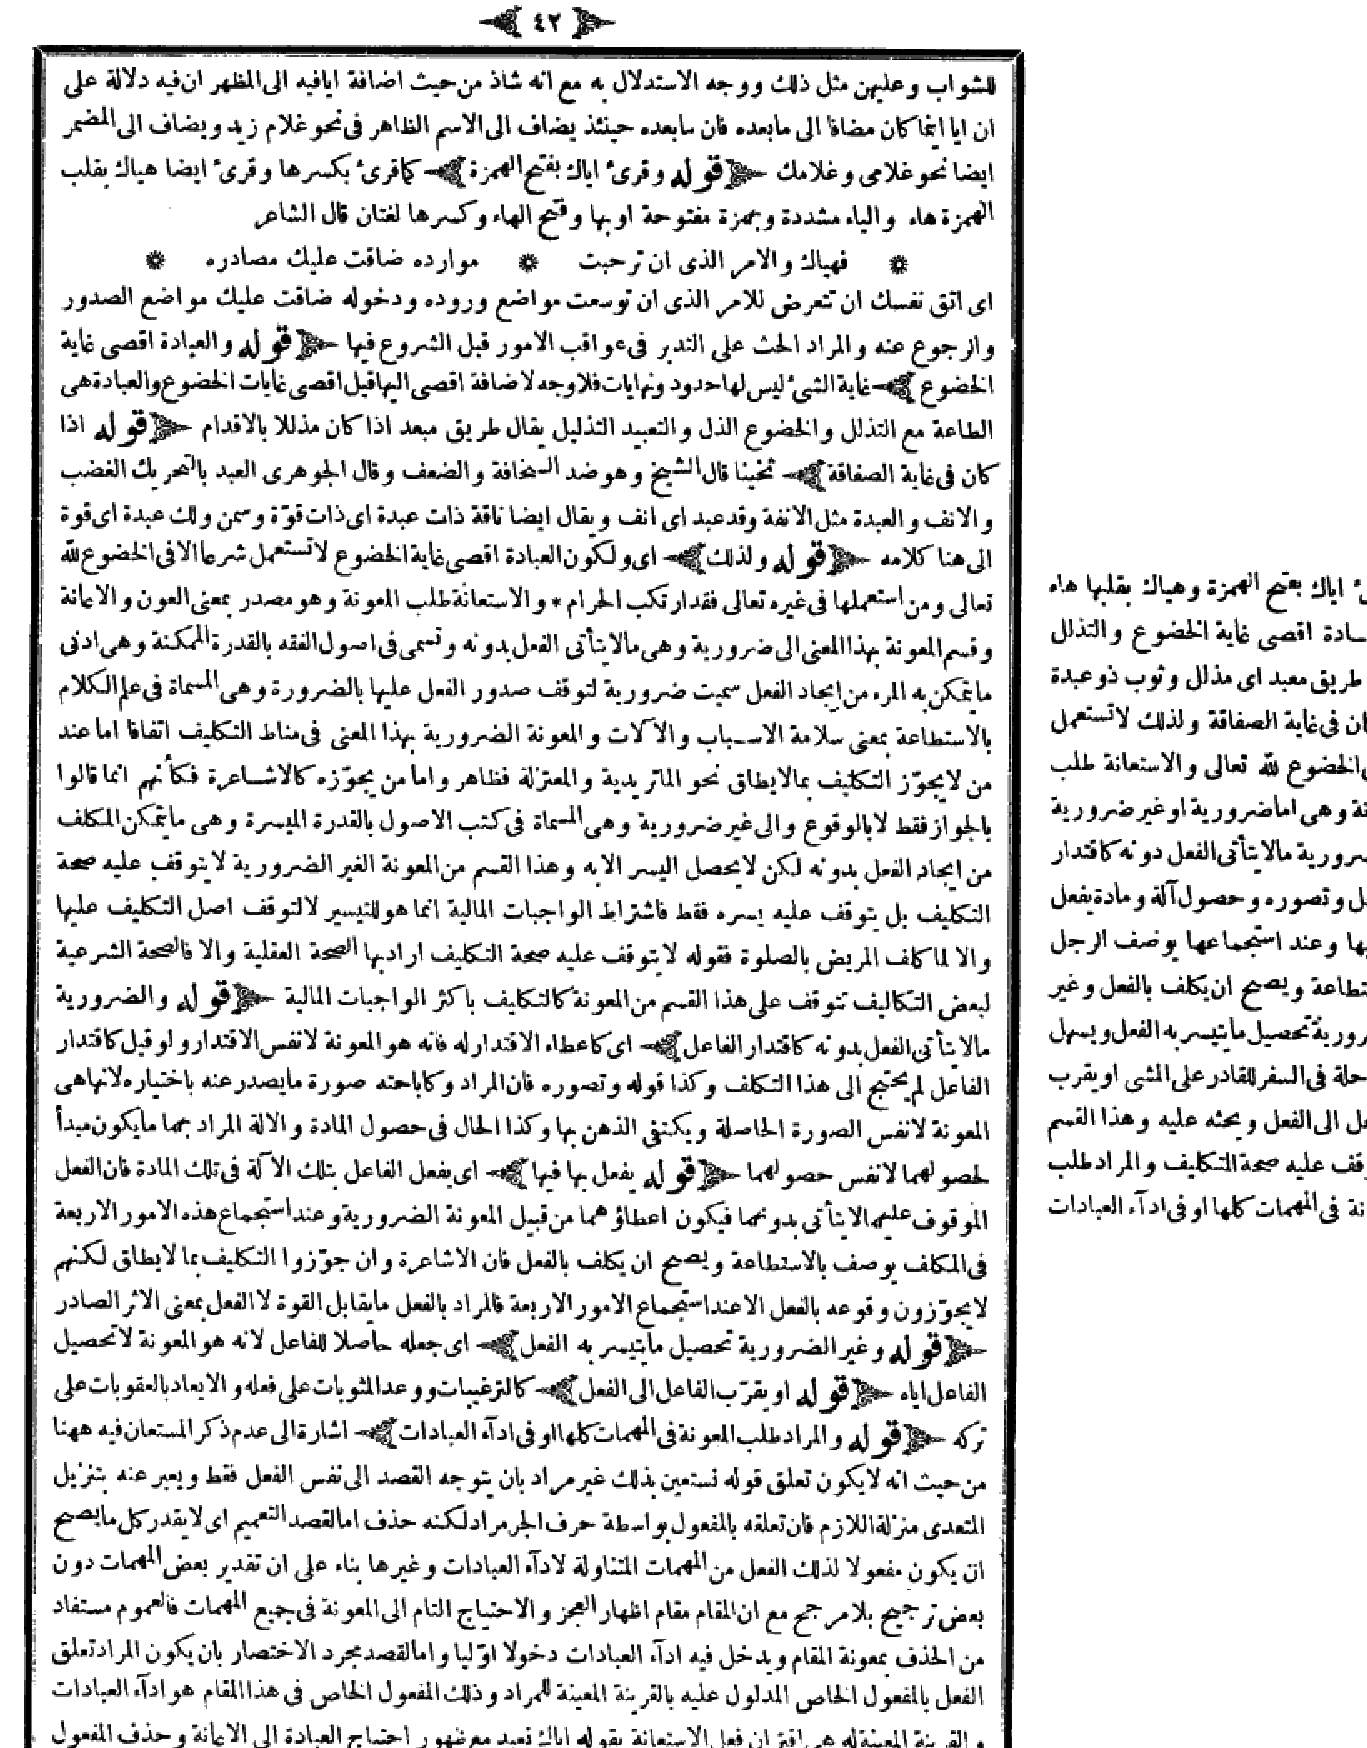 ٤٢
للشواب وعليهن مثل ذلك ووجه الاستدلال به مع انه شاذ من حيث اضافة ايافيه الى المظهر ان فيه دلالة على
ان ايا انما كان مضافا الى مابعده فان مابعده حينئذ يضاف الى الاسم الظاهر فى نحو غلام زيد ويضاف الى المضمر
ايضا نحو غلامى وغلامك ﴿قوله وقرئ اياك بفتح الهمزة﴾ كما قرئ بكسرها وقرئ ايضا هياك بقلب
الهمزة هاء والياء مشددة وبهمزة مفتوحة اوبها وفتح الهاء وكسرها لغتان قال الشاعر
* فهياك والامر الذى ان ترحبت * موارده ضاقت عليك مصادره *
اى اتق نفسك ان تتعرض للامر الذى ان توسعت مواضع وروده ودخوله ضاقت عليك مواضع الصدور
والرجوع عنه والمراد الحث على التدبر فى عواقب الامور قبل الشروع فيها ﴿قوله والعبادة اقصى غاية
الخضوع﴾ غاية الشئ ليس لها حدود ونهايات فلا وجه لاضافة اقصى اليها قيل اقصى غايات الخضوع والعبادة هى
الطاعة مع التذلل والخضوع الذل والتعبيد التذليل يقال طريق مبعد اذا كان مذللا بالاقدام ﴿قوله اذا
كان فى غاية الصفاقة﴾ ثخينا قال الشيخ وهو ضد السخافة والضعف وقال الجوهرى العبد بالتحريك الغضب
والانف والعبدة مثل الانفة وقد عبد اى انف ويقال ايضا ناقة ذات عبدة اى ذات قوّة وسمن ولك عبدة اى قوة
الى هنا كلامه ﴿قوله ولذلك﴾ اى ولكون العبادة اقصى غاية الخضوع لا تستعمل شرعا الا فى الخضوع لله
تعالى ومن استعملها فى غيره تعالى فقد ارتكب الحرام * والاستعانة طلب المعونة وهو مصدر بمعنى العون والاعانة
وقسم المعونة بهذا المعنى الى ضرورية وهى مالا يتأتى الفعل بدونه وتسمى فى اصول الفقه بالقدرة الممكنة وهى ادنى
مايتمكن به المرء من ايجاد الفعل سميت ضرورية لتوقف صدور الفعل عليها بالضرورة وهى المسماة فى علم الكلام
بالاستطاعة بمعنى سلامة الاسباب والآلات والمعونة الضرورية بهذا المعنى فى مناط التكليف اتفاقا اما عند
من لا يجوّز التكليف بمالايطاق نحو الماتريدية والمعتزلة فظاهر واما من يجوّزه كالاشاعرة فكأنهم انما قالوا
بالجواز فقط لا بالوقوع والى غير ضرورية وهى المسماة فى كتب الاصول بالقدرة الميسرة وهى مايتمكن المكلف
من ايجاد الفعل بدونه لكن لا يحصل اليسر الا به وهذا القسم من المعونة الغير الضرورية لا يتوقف عليه صحة
التكليف بل يتوقف عليه يسره فقط فاشتراط الواجبات المالية انما هو للتيسير لا لتوقف اصل التكليف عليها
والا لما كلف المريض بالصلوة فقوله لا يتوقف عليه صحة التكليف اراد بها الصحة العقلية والا فالصحة الشرعية
لبعض التكاليف تتوقف على هذا القسم من المعونة كالتكليف باكثر الواجبات المالية ﴿قوله والضرورية
مالا يتأتى الفعل بدونه كاقتدار الفاعل﴾ اى كاعطاء الاقتدار له فانه هو المعونة لا نفس الاقتدار ولو قيل كاقتدار
الفاعل لم يحتج الى هذا التكلف وكذا قوله وتصوره فان المراد وكاباحته صورة مايصدر عنه باختياره لانها هى
المعونة لا نفس الصورة الحاصلة ويكتفى الذهن بها وكذا الحال فى حصول المادة والالة المراد بهما مايكون مبدأ
لحصولهما لا نفس حصولهما ﴿قوله يفعل بها فيها﴾ اى يفعل الفاعل بتلك الآلة فى تلك المادة فان الفعل
الموقوف عليهما لا يتأتى بدونهما فيكون اعطاؤهما من قبيل المعونة الضرورية وعند استجماع هذه الامور الاربعة
فى المكلف يوصف بالاستطاعة ويصح ان يكلف بالفعل فان الاشاعرة وان جوّزوا التكليف بما لايطاق لكنهم
لا يجوّزون وقوعه بالفعل الا عند استجماع الامور الاربعة فالمراد بالفعل مايقابل القوة لا الفعل بمعنى الاثر الصادر
﴿قوله وغير الضرورية تحصيل مايتيسر به الفعل﴾ اى جعله حاصلا للفاعل لانه هو المعونة لا تحصيل
الفاعل اياه ﴿قوله اويقرّب الفاعل الى الفعل﴾ كالترغيبات ووعد المثوبات على فعله والايعاد بالعقوبات على
تركه ﴿قوله والمراد طلب المعونة فى المهمات كلها او فى ادآء العبادات﴾ اشارة الى عدم ذكر المستعان فيه ههنا
من حيث انه لايكون تعلق قوله نستعين بذلك غير مراد بان يتوجه القصد الى نفس الفعل فقط ويعبر عنه بتنزيل
المتعدى منزلة اللازم فان تعلقه بالمفعول بواسطة حرف الجر مراد لكنه حذف اما لقصد التعميم اى لا يقدر كل مايصح
ان يكون مفعولا لذلك الفعل من المهمات المتناولة لادآء العبادات وغيرها بناء على ان تقدير بعض المهمات دون
بعض ترجيح بلامرجح مع ان المقام مقام اظهار العجز والاحتياج التام الى المعونة فى جميع المهمات فالعموم مستفاد
من الحذف بمعونة المقام ويدخل فيه ادآء العبادات دخولا اوّليا واما لقصد مجرد الاختصار بان يكون المراد تعلق
الفعل بالمفعول الخاص المدلول عليه بالقرينة المعينة للمراد وذلك المفعول الخاص فى هذا المقام هو ادآء العبادات
والقرينة المعينة له هى اقتران فعل الاستعانة بقوله اياك نعبد مع ظهور احتياج العبادة الى الاعانة وحذف المفعول
اياك بفتح الهمزة وهياك بقلبها هاء
اقصى غاية الخضوع والتذلل
طريق معبد اى مذلل وثوب ذو عبدة
فى غاية الصفاقة ولذلك لا تستعمل
الخضوع لله تعالى والاستعانة طلب
وهى اما ضرورية او غير ضرورية
مالا يتأتى الفعل دونه كاقتدار
وتصوره وحصول آلة ومادة يفعل
وعند استجماعها يوصف الرجل
ويصح ان يكلف بالفعل وغير
تحصيل مايتيسر به الفعل ويسهل
فى السفر للقادر على المشى او يقرب
الى الفعل ويحثه عليه وهذا القسم
عليه صحة التكليف والمراد طلب
فى المهمات كلها او فى ادآء العبادات